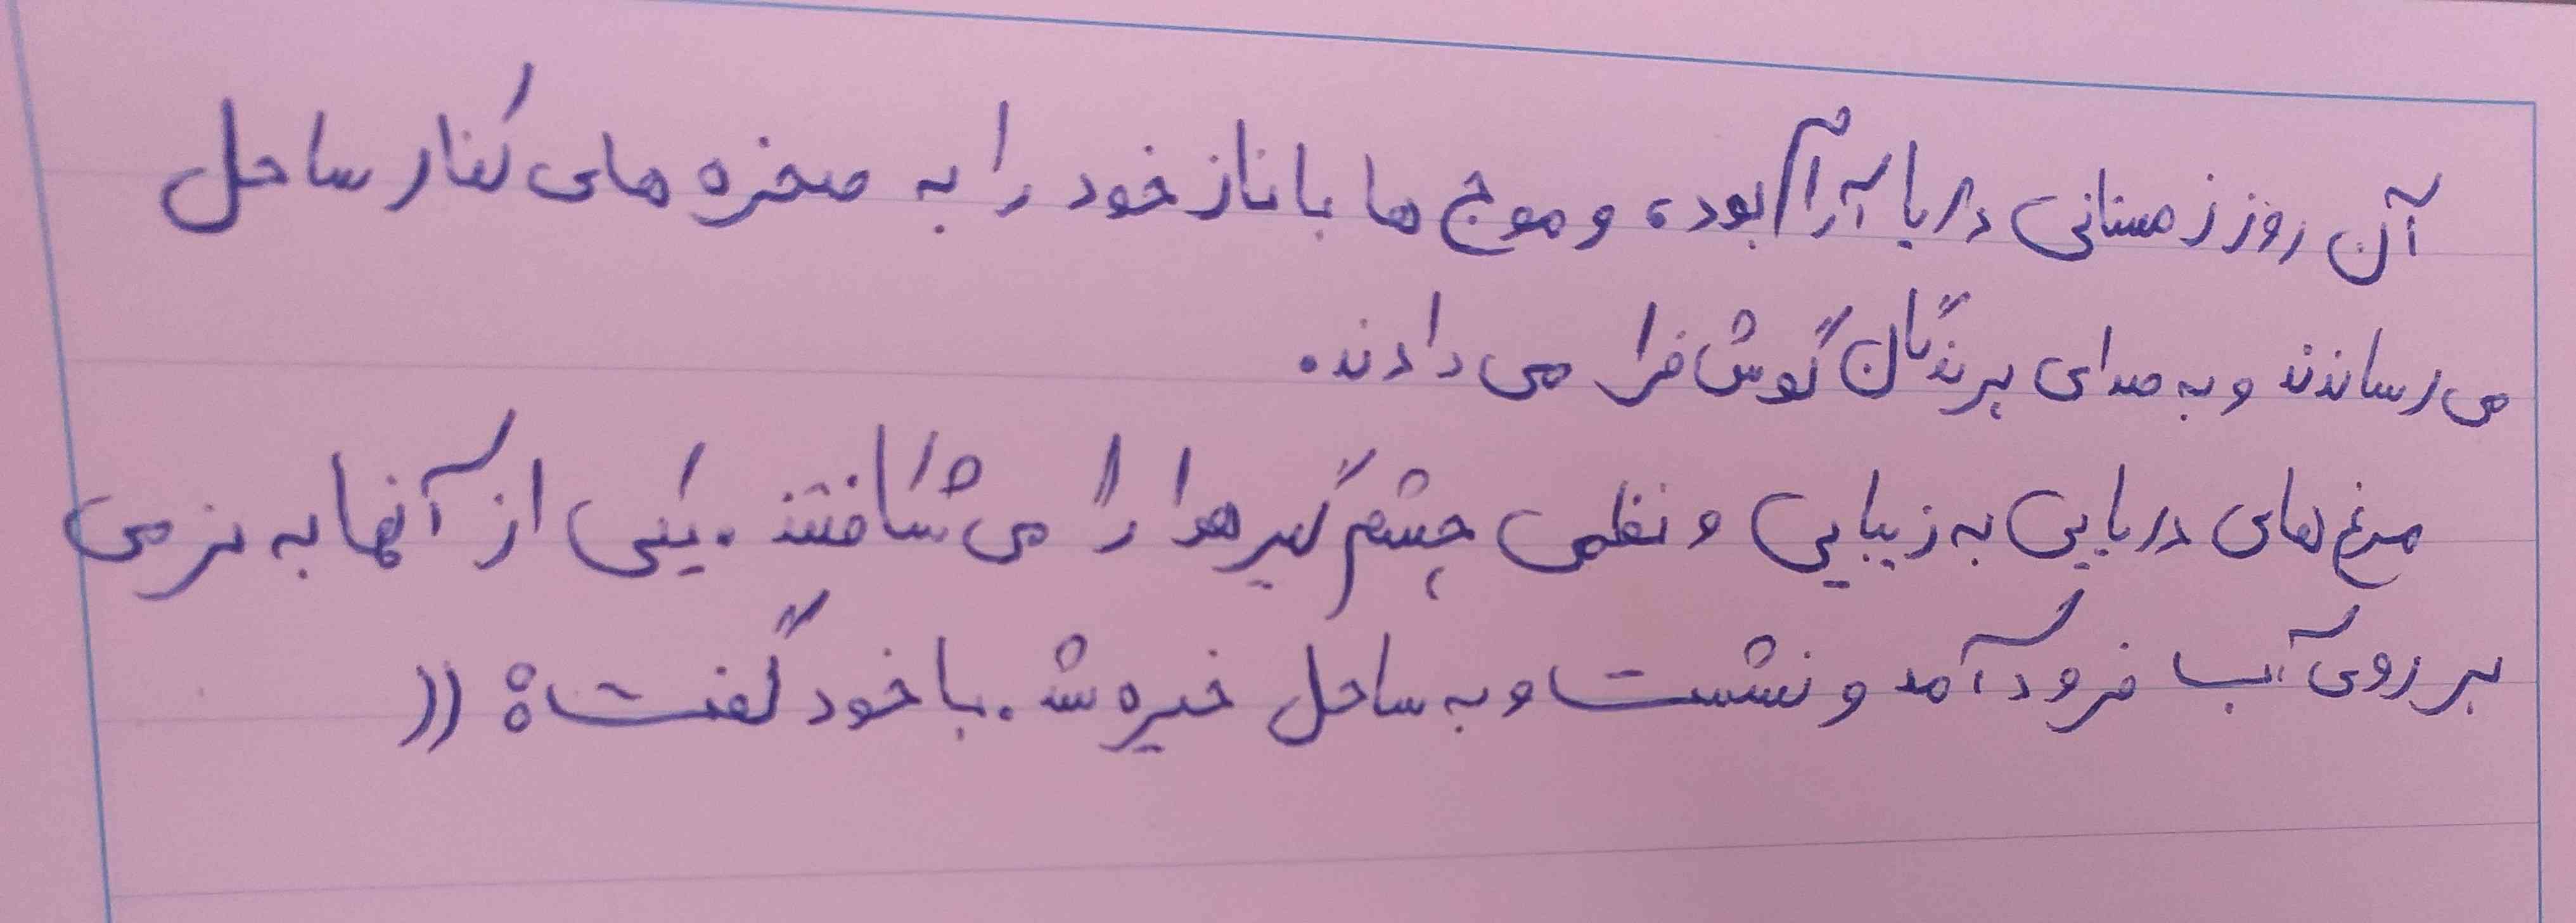 آن روز زمستانی دریا آرام بود، و موج ها با ناز خود را به صخره های کنار ساحل
می رساندند و به صدای پرندگان گوش فرا می دادند.
مرغ های دریایی به زیبایی و نظمی چشم گیر هوا را می شکافتند. یکی از آنها به نرمی
بر روی آب فرود آمد و نشست و به ساحل خیره شد. با خود گفت: ((